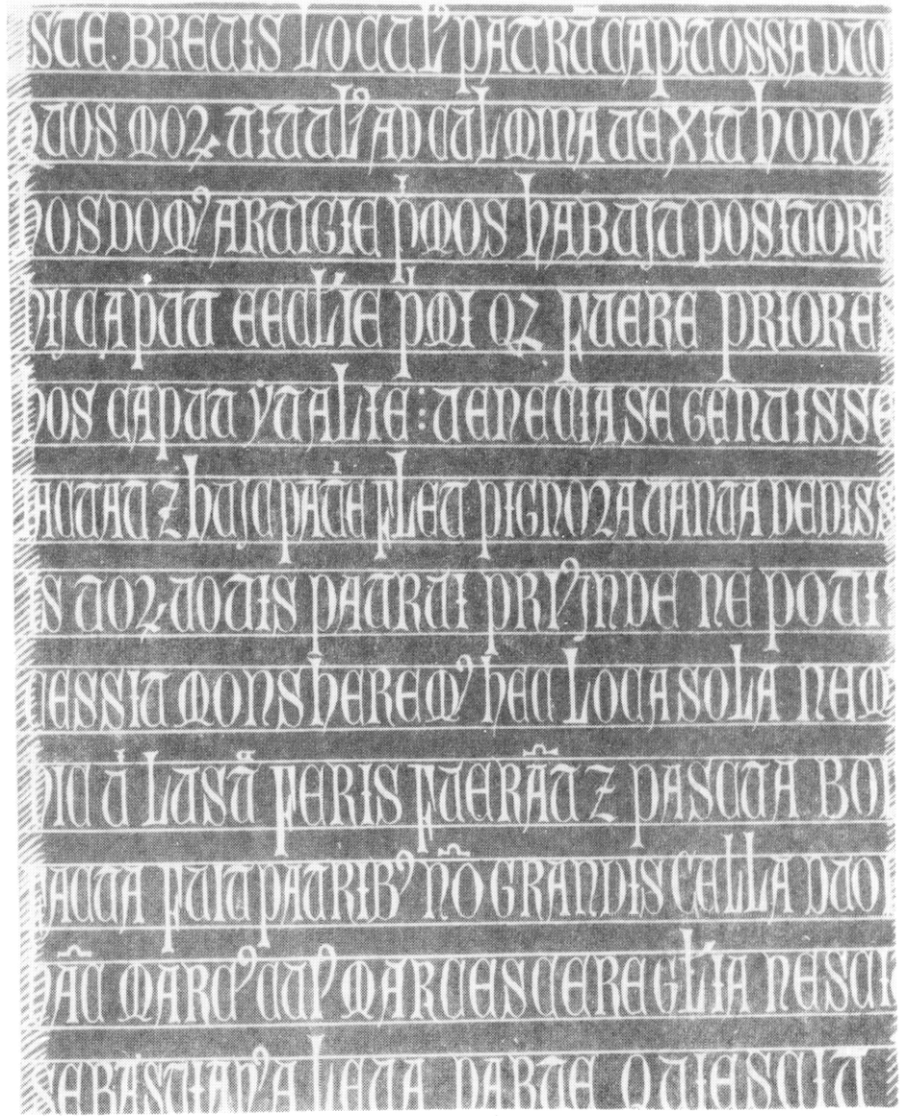 ISTE BREVIS LOCUL' PATRŪ CAPIT OSSA DUO
QUOS MOꝜ TITUL' AD CULMINA VEXIT HONOꝜ
HOS DOM' ARTIGIE PͥMOS HABUJT POSITORE
HIJ CAPUT ECCLIE PͥMI QZ FUERE PRIORE
HOS CAPUT YTALIE : VENECIA SE GENUISSE
JACTAT Z HUJC PATͥE FLET PIGNORA TANTA DEDISS
UOꝜ UOTIS PATRUI PRI' JNDE NEPOTIS
CESSIT MONS HEREM' HEC LOCA SOLA NEM
HIC Uͥ LUST FERIS FUERĀT Z PASCUA BO
FACTA FUIT PATRIB' NŌ GRANDIS CELLA DUO
HĀC MARC' CUI' MARCESCERE GLIA NESCI
SEBASTIAN' A LEVA PARTE QUIESCIT